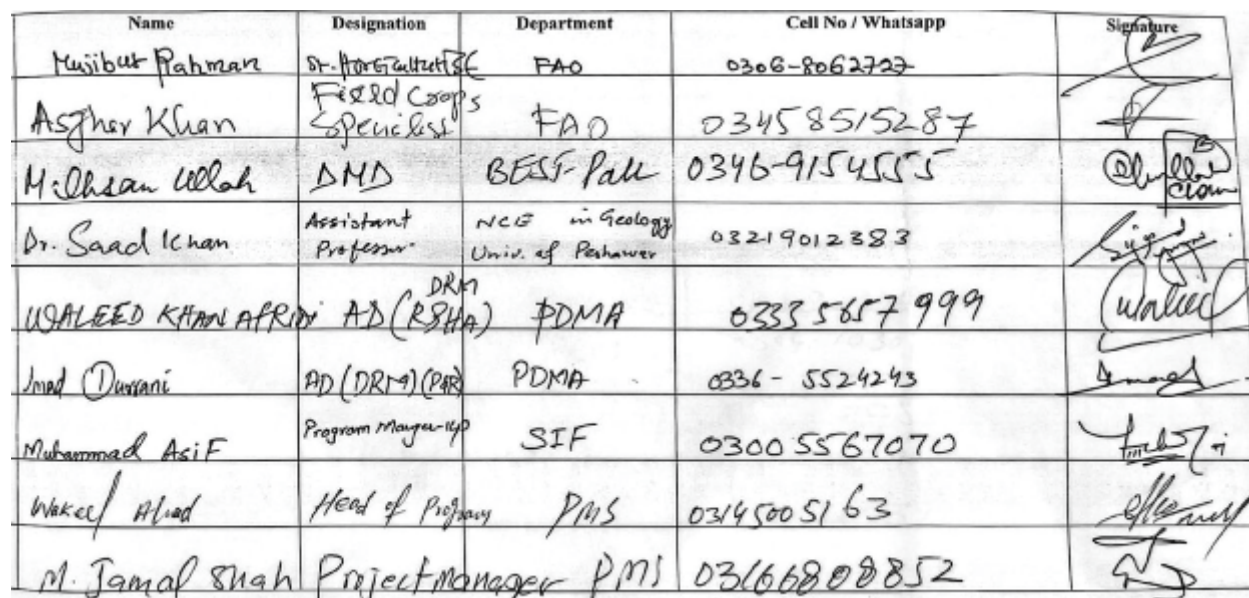 Name Designation Department Cell No / Whatsapp Signature
Mujibur Rahman FAO 0306-8062727
Field Crops
Asghar Khan FAO 03458515287
M. Ihsan Ullah DMD BEST-Pak 0346-9154555
Assistant NCE in Geology
Dr. Saad Khan Professor Univ. of Peshawar 03219012383
DRM
WALEED KHAN AFRIDI AD (R&HA) PDMA 03335657999 Waleed
Imad Durrani AD (DRM) (P&R) PDMA 0336-5524243
Muhammad Asif Program Manger-KP SIF 03005567070
Wakeel Ahad Head of Program PMS 03145005163
M. Jamal Shah Project manager PMS 03166808852